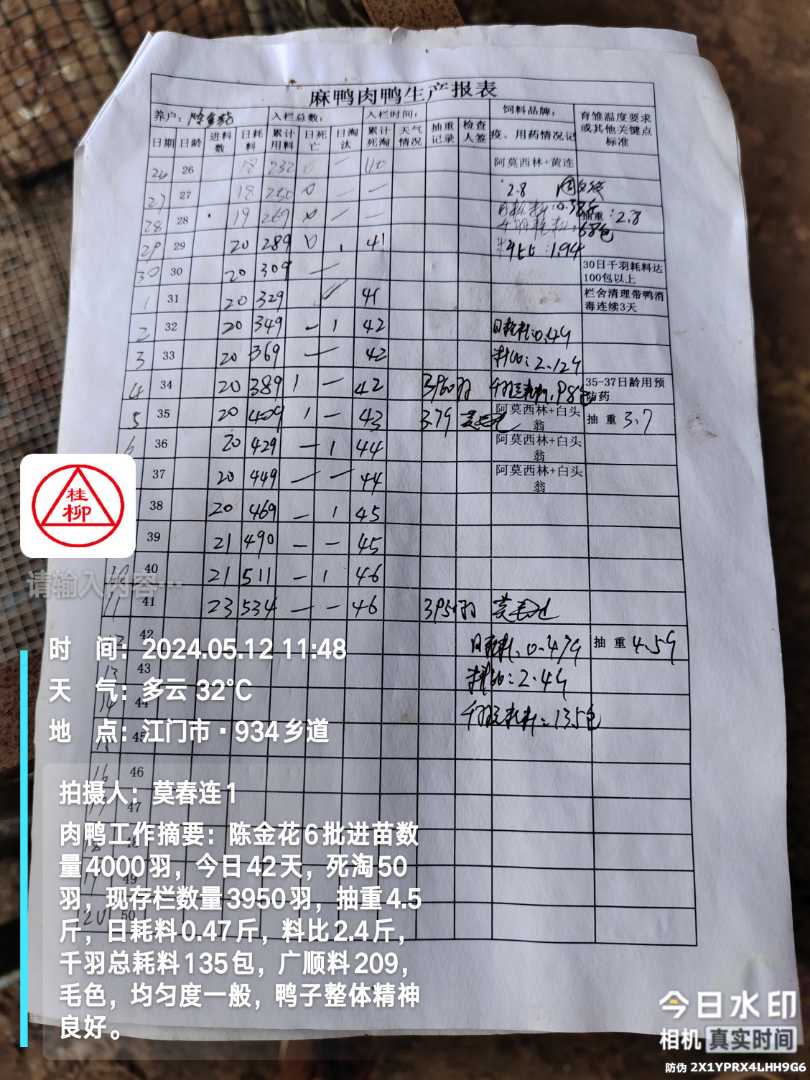 麻鸭肉鸭生产报表
养户: 入栏总数: 入栏时间: 饲料品牌: 育雏温度要求或其他关键点标准
日期 日龄 进料数 日耗料 累计用料 日死亡 日淘汰 累计死淘 天气情况 抽重记录 检查人签 疫、用药情况记
26 26 18 232 — 阿莫西林+黄连
27 27 18 250 — 2.8
28 28 19 269 — — 抽重:2.8
29 29 20 289 41 料比:1.94
30 30 20 309 — 30日千羽耗料达100包以上
1 31 20 329 41 栏舍清理带鸭消毒连续3天
2 32 20 349 — 1 42 日耗料:0.4斤
3 33 20 369 — — 42 料比:2.12斤
4 34 20 389 1 — 42 3960羽 35-37日龄用预
5 35 20 409 1 — 43 3.7斤 阿莫西林+白头翁 抽重 3.7
6 36 20 429 — 1 44 阿莫西林+白头翁
37 20 449 — — 44 阿莫西林+白头翁
38 20 469 — 1 45
39 21 490 — — 45
10 40 21 511 — 1 46
11 41 23 534 — — 46 3950羽
42 日耗料:0.47斤 抽重 4.5斤
13 43 料比:2.4斤
44 千羽总耗料:135包
46
47
49
50
桂柳
请输入内容…
时 间:2024.05.12 11:48
天 气:多云 32℃
地 点:江门市·934乡道
拍摄人:莫春连1
肉鸭工作摘要:陈金花6批进苗数
量4000羽,今日42天,死淘50
羽,现存栏数量3950羽,抽重4.5
斤,日耗料0.47斤,料比2.4斤,
千羽总耗料135包,广顺料209,
毛色,均匀度一般,鸭子整体精神
良好。
今日水印
相机 真实时间
防伪 2X1YPRX4LHH9G6